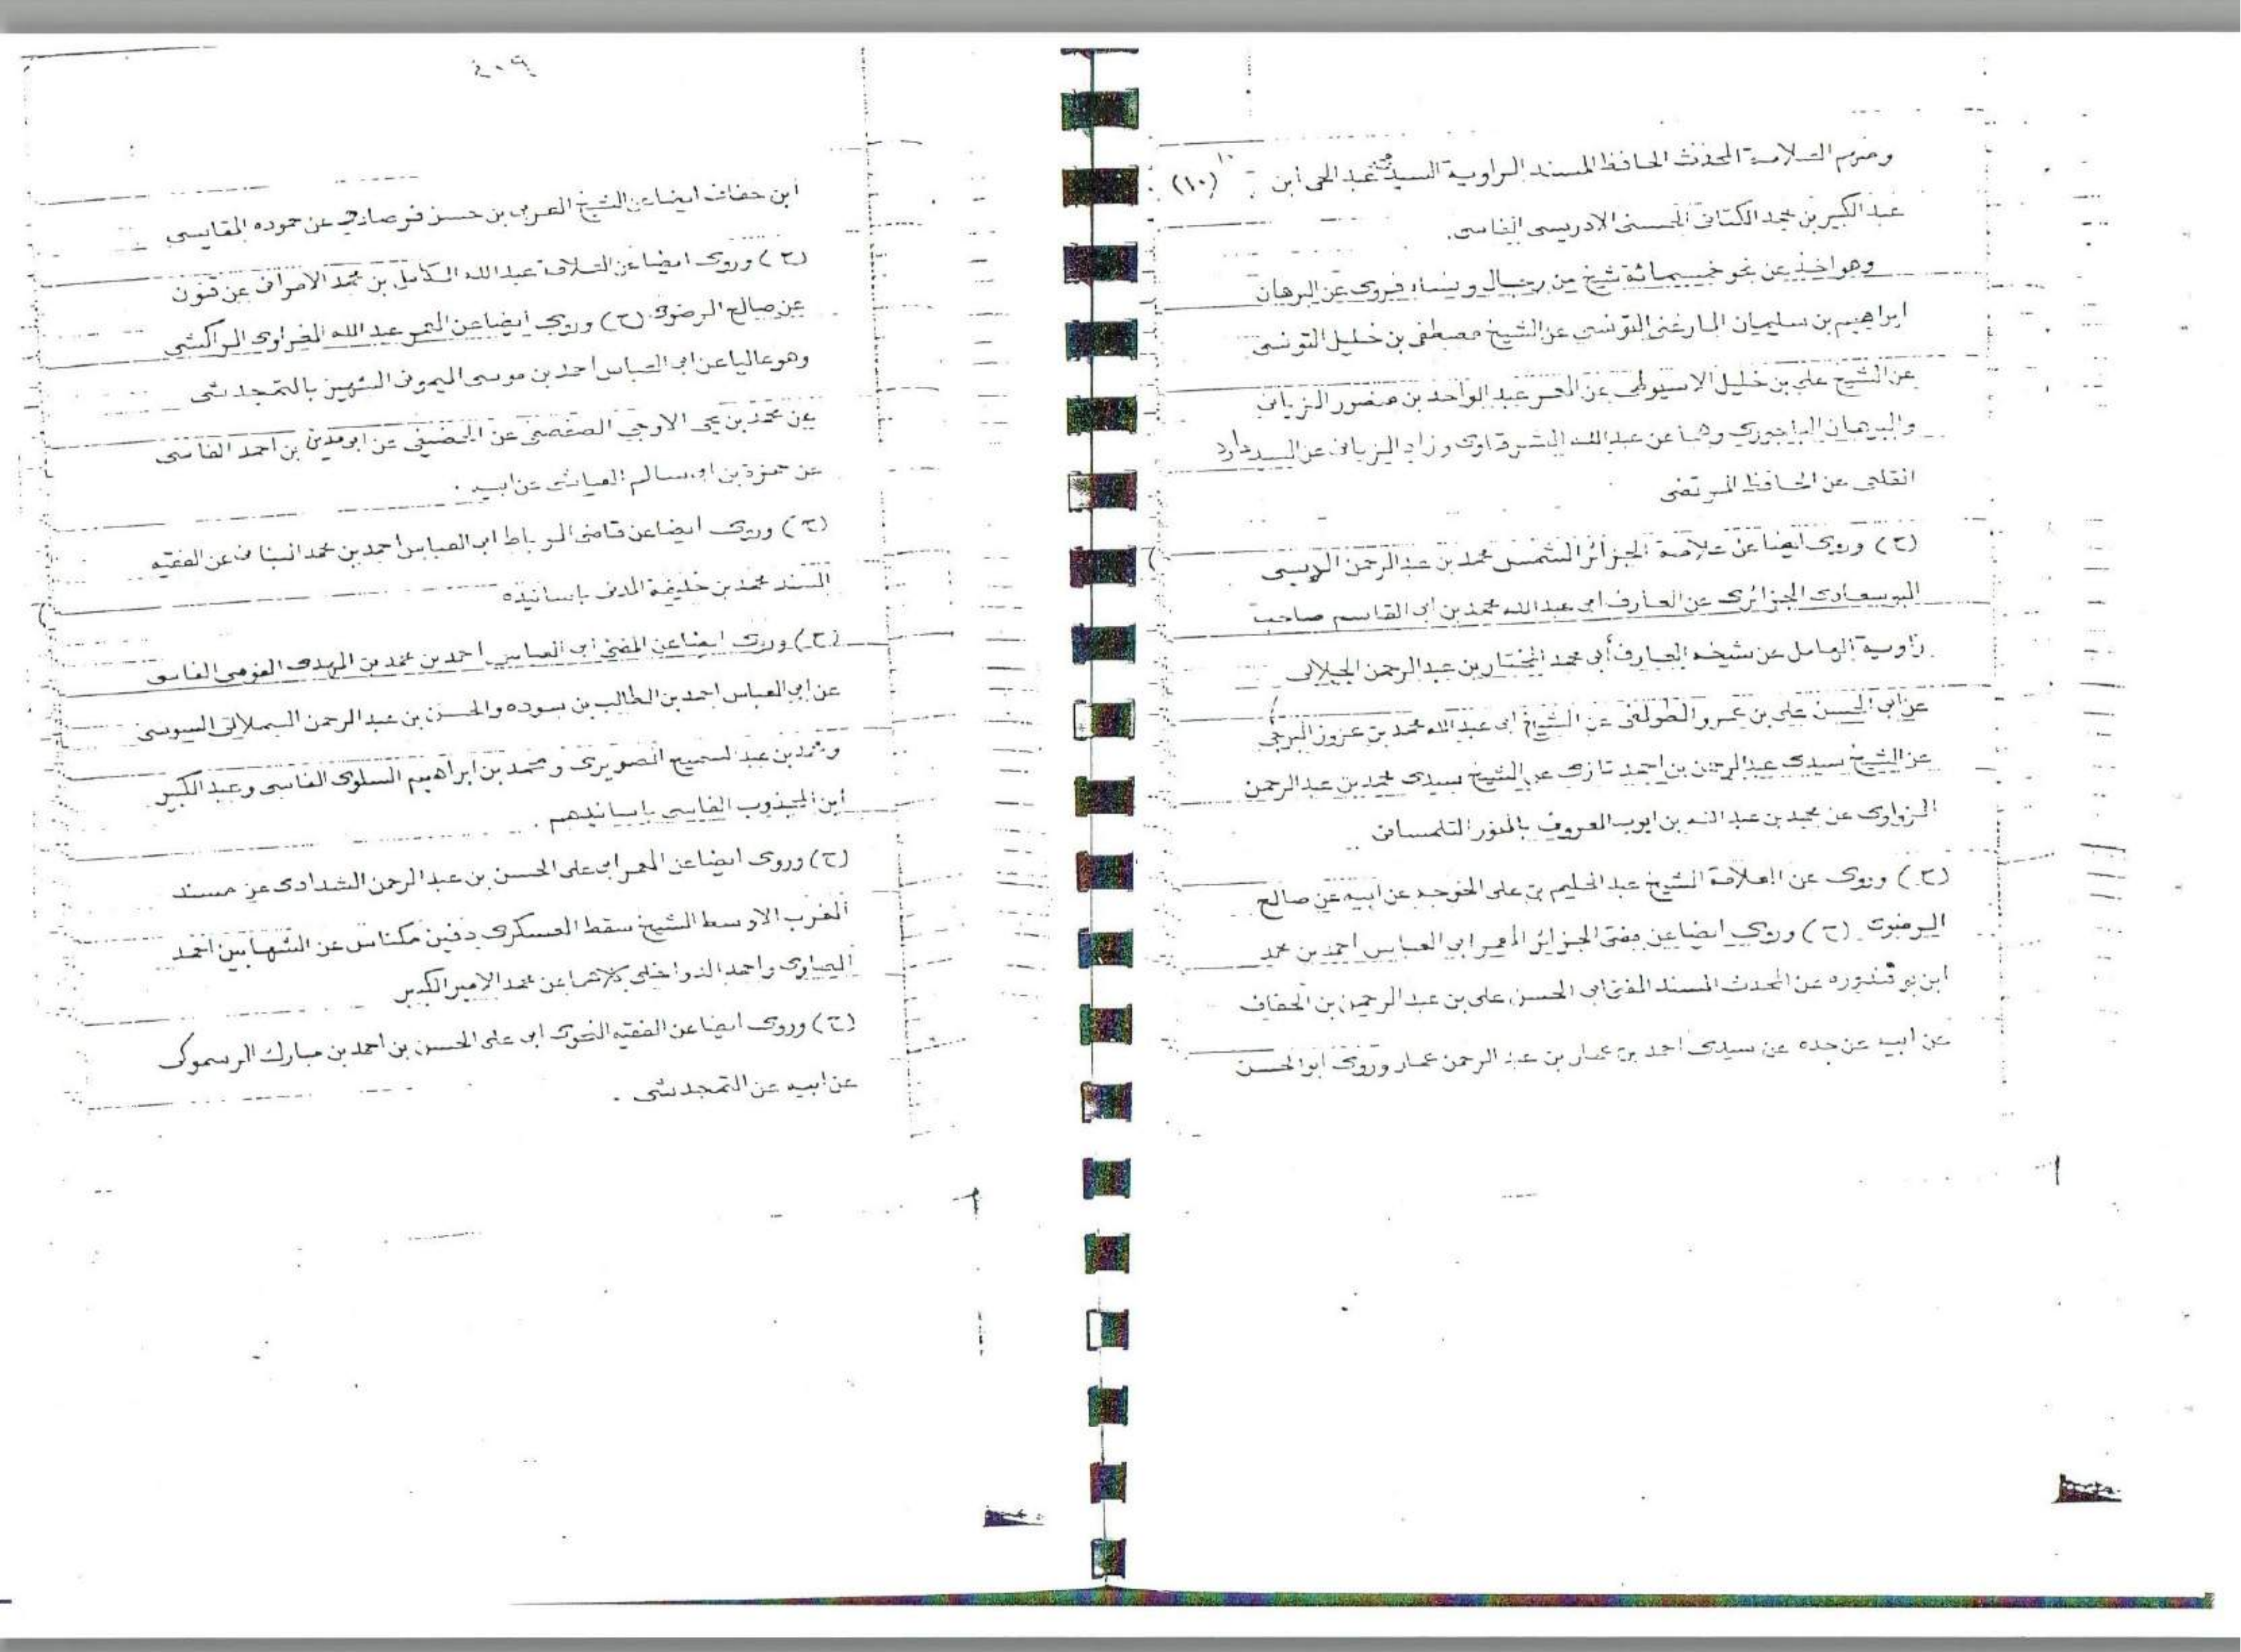 ومنهم العلامة المحدث الحافظ المسند الراوية السيد محمد عبد الحي ابن (١٠) ١٠
عبد الكبير بن محمد الكتاني الحسني الادريسي الفاسي.
وهو اخذ عن نحو خمسمائة شيخ من رجال ونساء فروى عن البرهان
ابراهيم بن سليمان المارغني التونسي عن الشيخ مصطفى بن خليل التونسي
عن الشيخ علي بن خليل الاسيوطي عن المعمر عبد الواحد بن منصور الزياني
والبرهان الباجوري وهما عن عبد الله الشرقاوي وزاد الزياني عن السيد داود
القلعي عن الحافظ المرتضى
(ح) وروى ايضا عن علامة الجزائر الشمس محمد بن عبد الرحمن الديسي
البوسعادي الجزائري عن العارف ابي عبد الله محمد بن ابي القاسم صاحب
زاوية الهامل عن شيخه العارف أبي محمد المختار بن عبد الرحمن الجيلالي
عن ابي الحسن علي بن عمرو الطولقي عن الشيخ ابي عبد الله محمد بن عزوز البرجي
عن الشيخ سيدي عبد الرحمن بن احمد تازي عن الشيخ سيدي محمد بن عبد الرحمن
الزواوي عن محمد بن عبد الله بن ايوب المعروف بالمنور التلمساني
(ح) وروى عن العلامة الشيخ عبد الحليم بن علي الخوجه عن ابيه عن صالح
الرضوي (ح) وروى ايضا عن مفتي الجزائر المعمر ابي العباس احمد بن محمد
ابن بو قندوره عن المحدث المسند المفتي ابي الحسن علي بن عبد الرحمن بن الحفاف
عن ابيه عن جده عن سيدي احمد بن عمار بن عبد الرحمن عمار وروى ابو الحسن
٢٠٩
ابن حفاف ايضا عن الشيخ العربي بن حسن عن حموده المقايسي
(ح) وروى ايضا عن العلامة عبد الله الكامل بن محمد الامراني عن قنون
عن صالح الرضوي (ح) وروى أيضا عن المعمر عبد الله المراكشي
وهو عاليا عن ابي العباس احمد بن موسى الشهير بالتمجدشتي
عن محمد بن يحيى الاوجي عن الحضيني عن ابي مدين بن احمد الفاسي
عن حمزة بن ابي سالم العياشي عن ابيه.
(ح) وروى ايضا عن قاضي الرباط ابي العباس احمد بن محمد البناني عن الفقيه
المسند محمد بن خليفة المدني باسانيده
(ح) وروى ايضا عن المفتي ابي العباس احمد بن محمد بن المهدي الفاسي
عن ابي العباس احمد بن الطالب بن سوده والحسن بن عبد الرحمن السملالي السوسي
ومحمد بن عبد السميح الصويري ومحمد بن ابراهيم السلوي الفاسي وعبد الكبير
ابن المجذوب الفاسي باسانيدهم.
(ح) وروى ايضا عن المعمر ابي علي الحسن بن عبد الرحمن الشدادي عن مسند
المغرب الاوسط الشيخ سقط العسكري دفين مكناس عن الشهابين احمد
الصاوي واحمد الدواخلي كلاهما عن محمد الامير الكبير
(ح) وروى ايضا عن الفقيه النحوي ابي علي الحسن بن احمد بن مبارك الرسموكي
عن ابيه عن التمجدشتي.